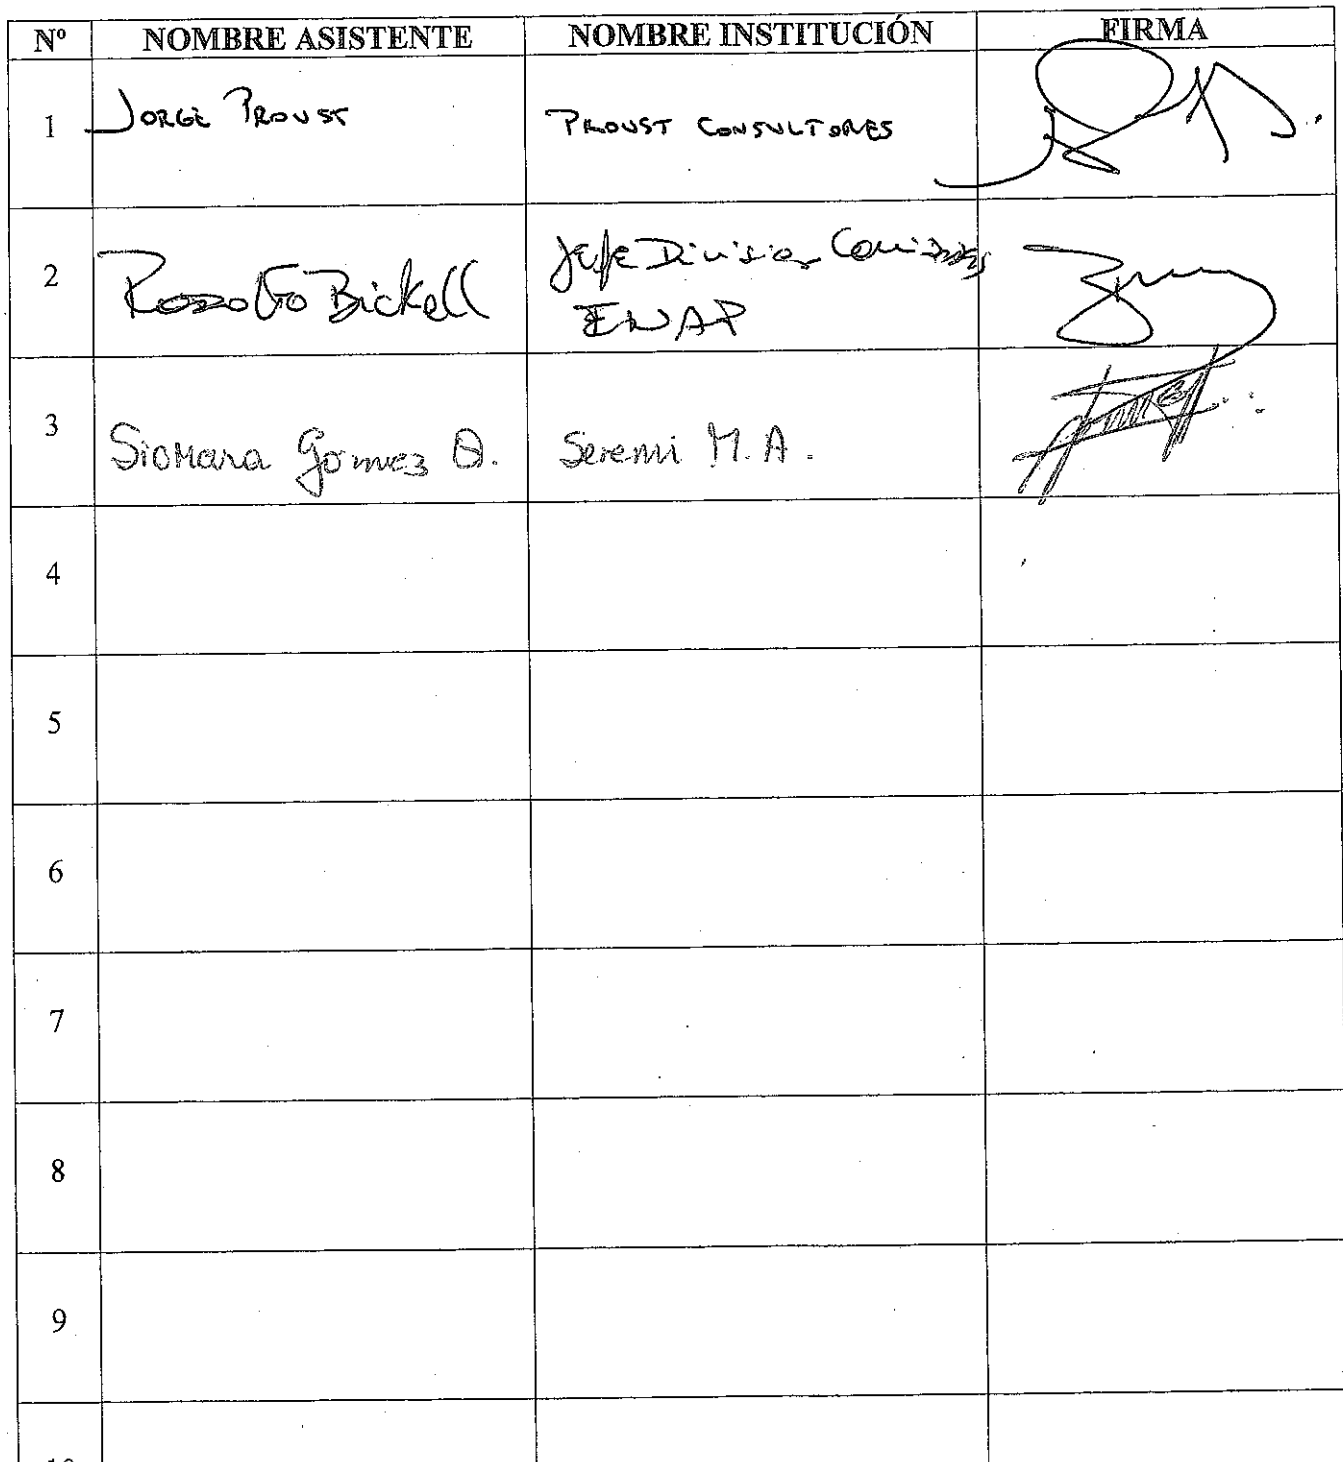 Nº NOMBRE ASISTENTE NOMBRE INSTITUCIÓN FIRMA
1 JORGE PROUST PROUST CONSULTORES
2 Rodolfo Bickell Jefe Division
ENAP
3 Siomara Gomez Q. Seremi M.A.
4
5
6
7
8
9
10